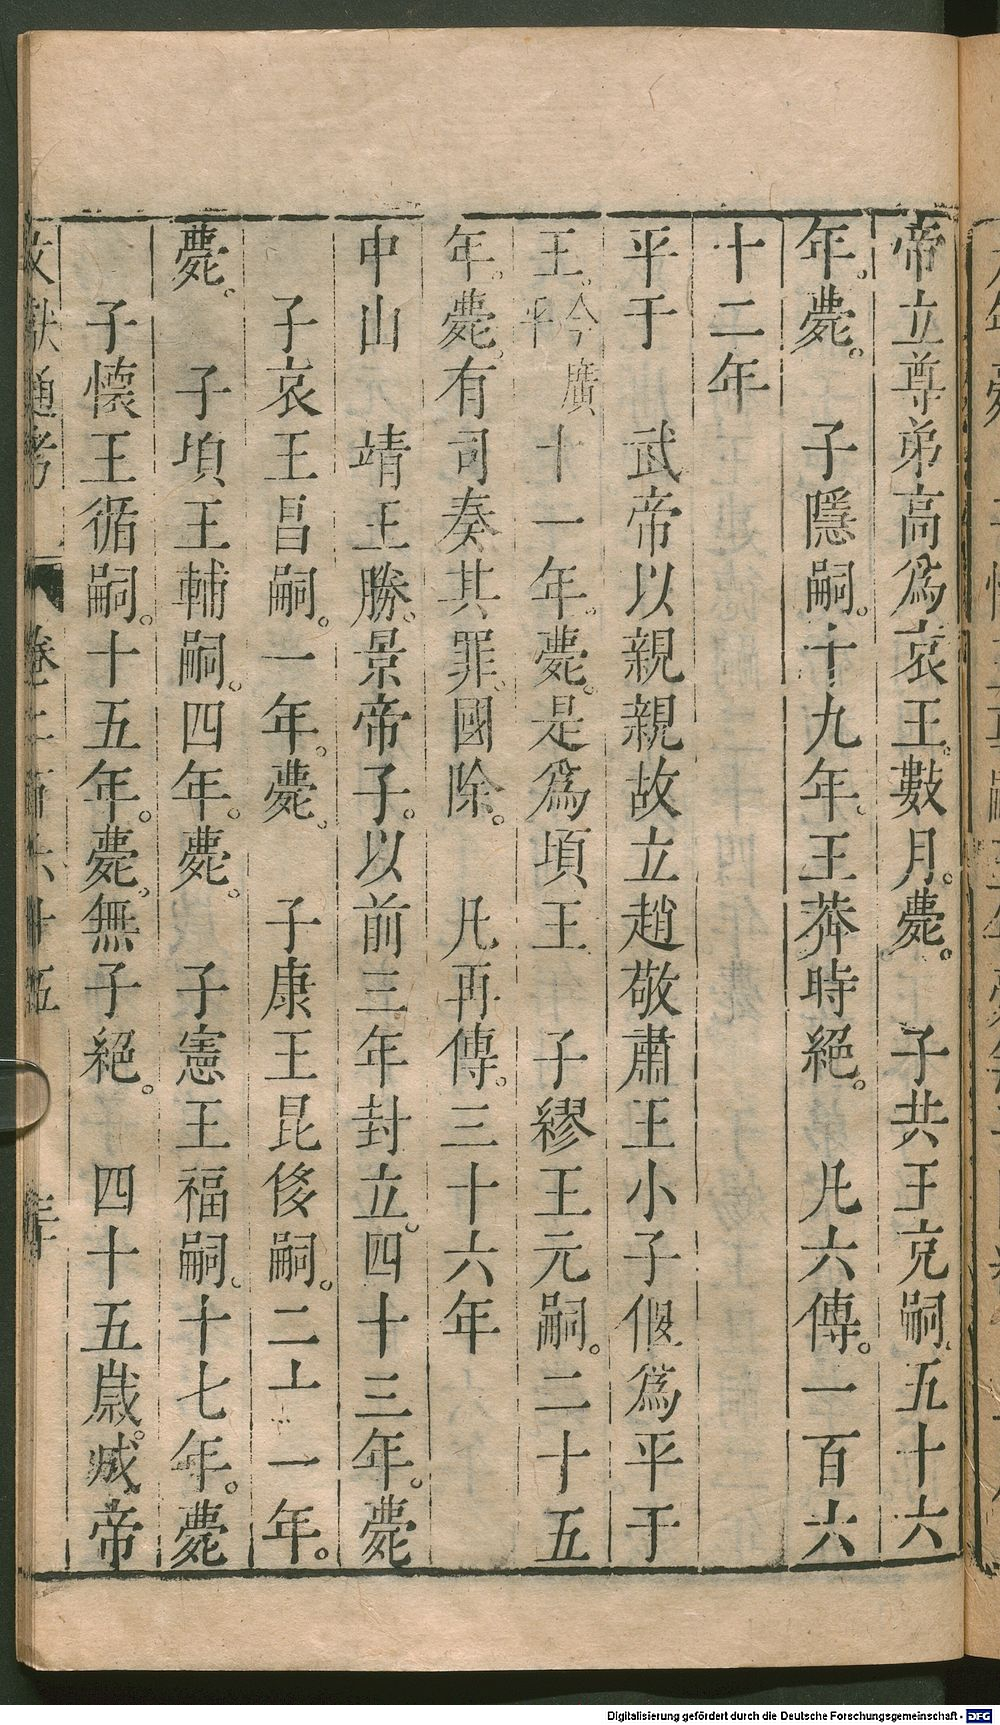 帝立尊弟高爲哀王。數月。薨。　子共王克嗣。五十六
年。薨。　子隱嗣。十九年。王莽時絕。　凡六傳。一百六
十二年
平于　武帝以親親故立趙敬肅王小子偃爲平于
王。今廣平　十一年。薨。是爲頃王　子繆王元嗣。二十五
年。薨。有司奏其罪。國除。　凡再傳。三十六年
中山　靖王勝。景帝子。以前三年封立。四十三年。薨
子哀王昌嗣。一年。薨。　子康王昆侈嗣。二十一年。
薨。　子頃王輔嗣。四年。薨。　子憲王福嗣。十七年。薨
子懷王循嗣。十五年。薨。無子絕。　四十五歲。成帝
文獻通考　卷二百六十五
Digitalisierung gefördert durch die Deutsche Forschungsgemeinschaft - DFG